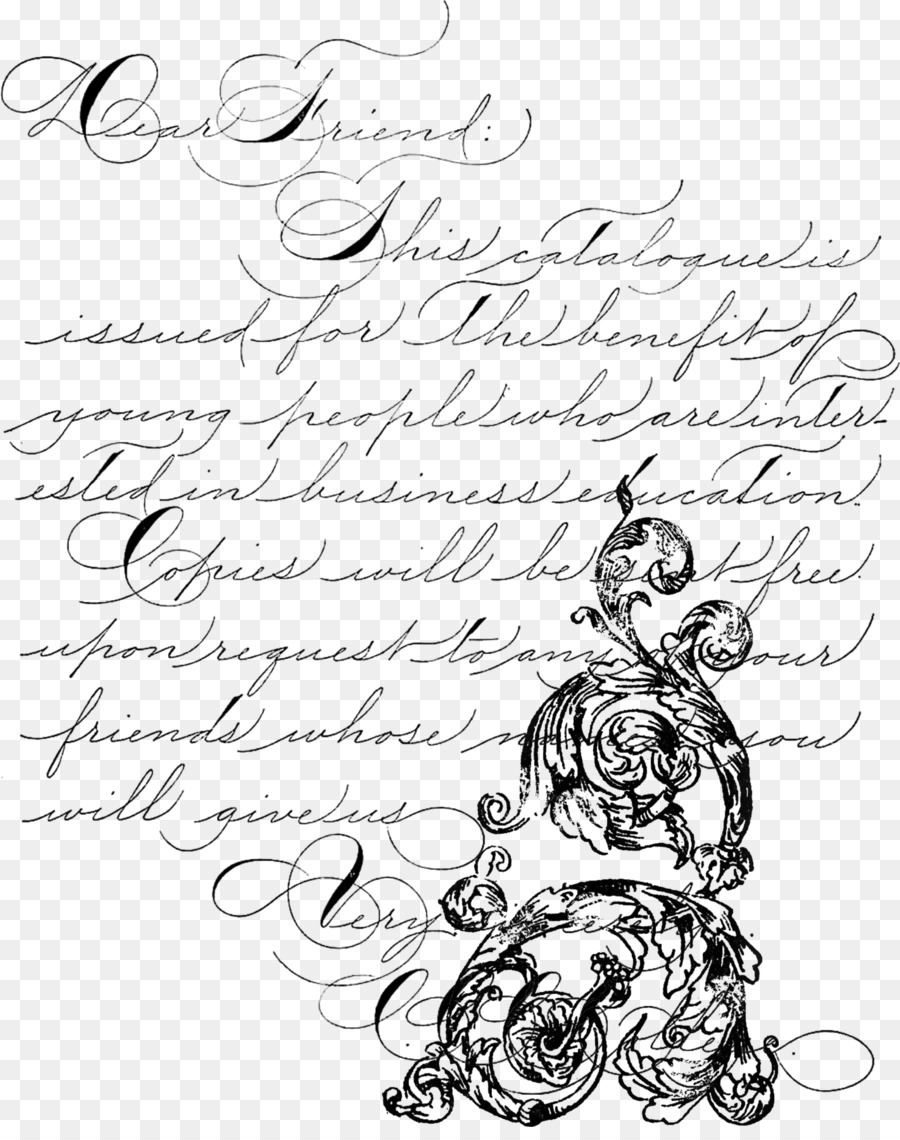 Dear Friend:
This catalogue is
issued for the benefit of
young people who are inter-
ested in business education.
Copies will be sent free
upon request to any your
friends whose you
will give us
Very